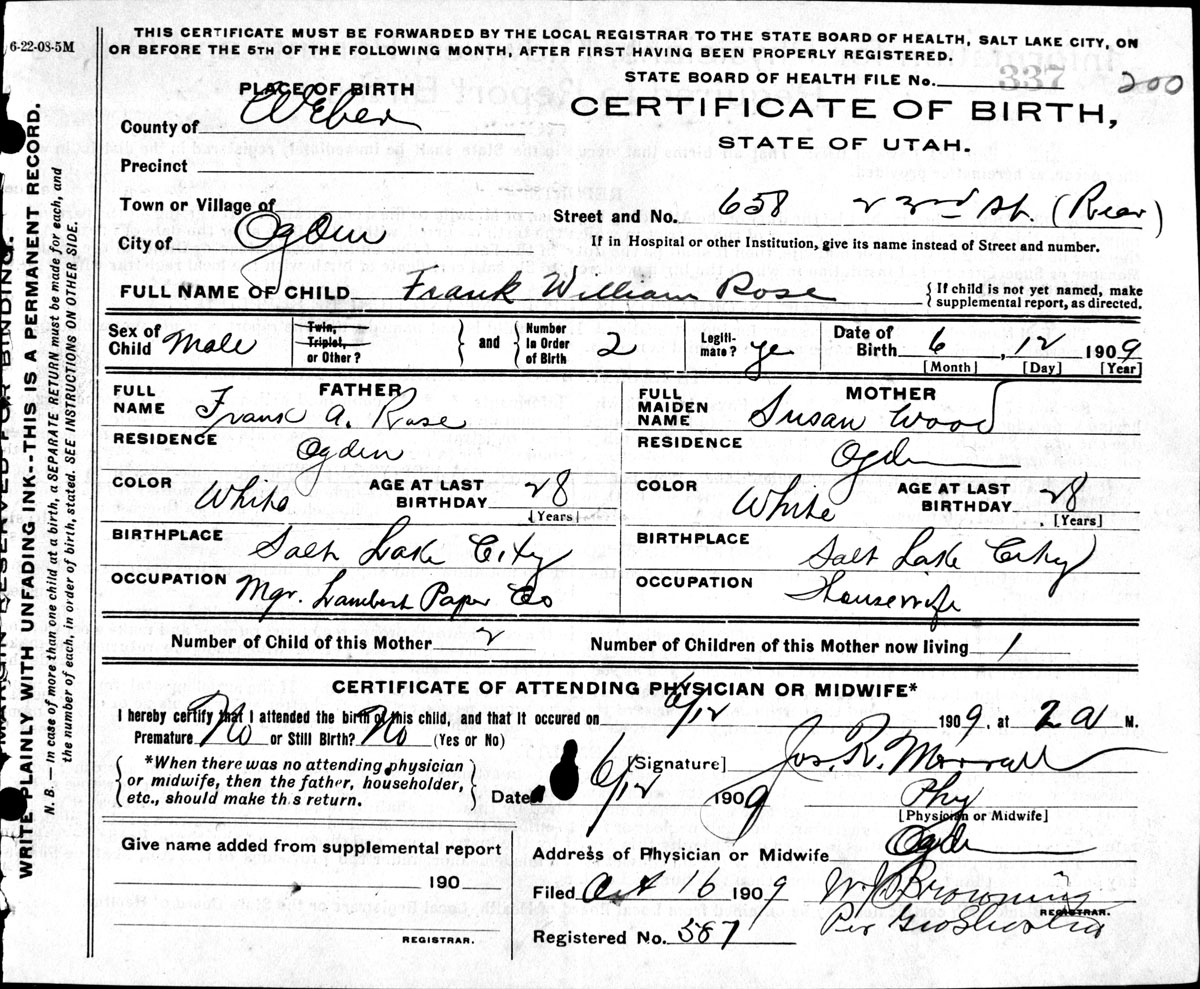 6-22-08-5M
THIS CERTIFICATE MUST BE FORWARDED BY THE LOCAL REGISTRAR TO THE STATE BOARD OF HEALTH, SALT LAKE CITY, ON
OR BEFORE THE 5TH OF THE FOLLOWING MONTH, AFTER FIRST HAVING BEEN PROPERLY REGISTERED.
STATE BOARD OF HEALTH FILE No. 337 200
PLACE OF BIRTH
CERTIFICATE OF BIRTH,
County of Weber
STATE OF UTAH.
Precinct
Town or Village of
Street and No. 658 23rd St. (Rear)
City of Ogden
If in Hospital or other Institution, give its name instead of Street and number.
FULL NAME OF CHILD Frank William Rose
If child is not yet named, make
supplemental report, as directed.
Sex of Child Male
Twin, Triplet, or Other?
and
Number In Order of Birth 2
Legiti-mate? ye
Date of Birth 6, 12 1909
[Month] [Day] [Year]
FATHER
FULL NAME Frank A. Rose
MOTHER
FULL MAIDEN NAME Susan Wood
RESIDENCE Ogden
RESIDENCE Ogden
COLOR White
AGE AT LAST BIRTHDAY 28
[Years]
COLOR White
AGE AT LAST BIRTHDAY 28
[Years]
BIRTHPLACE Salt Lake City
BIRTHPLACE Salt Lake City
OCCUPATION Mgr. Lambert Paper Co
OCCUPATION Housewife
Number of Child of this Mother 2
Number of Children of this Mother now living 1
CERTIFICATE OF ATTENDING PHYSICIAN OR MIDWIFE*
I hereby certify that I attended the birth of this child, and that it occured on 6/12 1909, at 2 a M.
Premature No or Still Birth? No (Yes or No)
*When there was no attending physician
or midwife, then the father, householder,
etc., should make this return.
[Signature] Jos. R. Morrall
Date 6/12 1909
Phy
[Physician or Midwife]
Give name added from supplemental report
190
REGISTRAR.
Address of Physician or Midwife Ogden
Filed Oct 16 1909
W. Browning
REGISTRAR.
Per Geo
Registered No. 587
MARGIN RESERVED FOR BINDING.
WRITE PLAINLY WITH UNFADING INK--THIS IS A PERMANENT RECORD.
N. B.— In case of more than one child at a birth, a SEPARATE RETURN must be made for each, and
the number of each, in order of birth, stated. SEE INSTRUCTIONS ON OTHER SIDE.